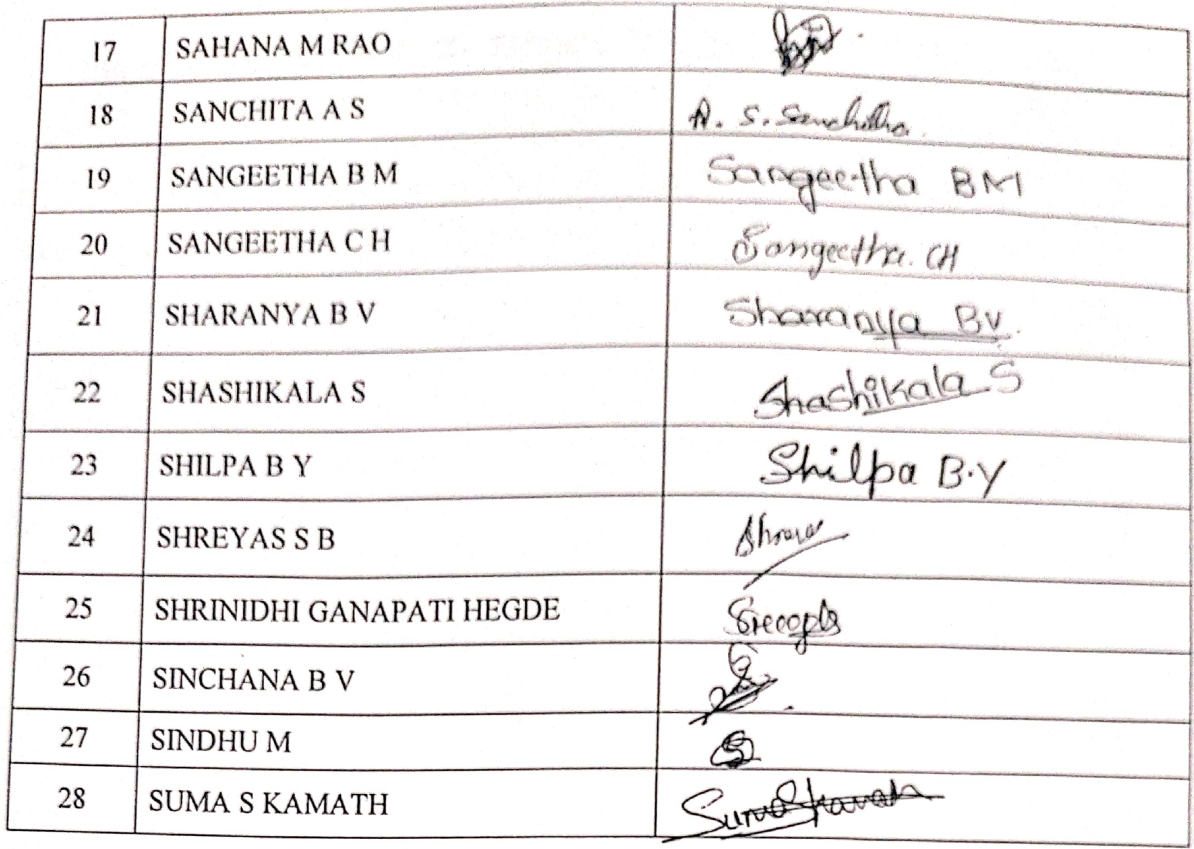 17 SAHANA M RAO
18 SANCHITA A S A. S. Sanchitha.
19 SANGEETHA B M Sangeetha BM
20 SANGEETHA C H Sangeetha. CH
21 SHARANYA B V Sharanya BV.
22 SHASHIKALA S Shashikala S
23 SHILPA B Y Shilpa B.Y
24 SHREYAS S B
25 SHRINIDHI GANAPATI HEGDE
26 SINCHANA B V
27 SINDHU M
28 SUMA S KAMATH SumaSkamath